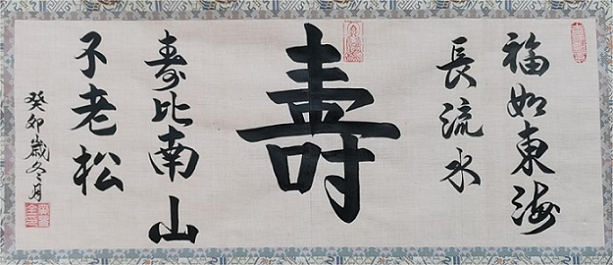 福如東海
長流水
壽
寿比南山
不老松
癸卯歲冬月